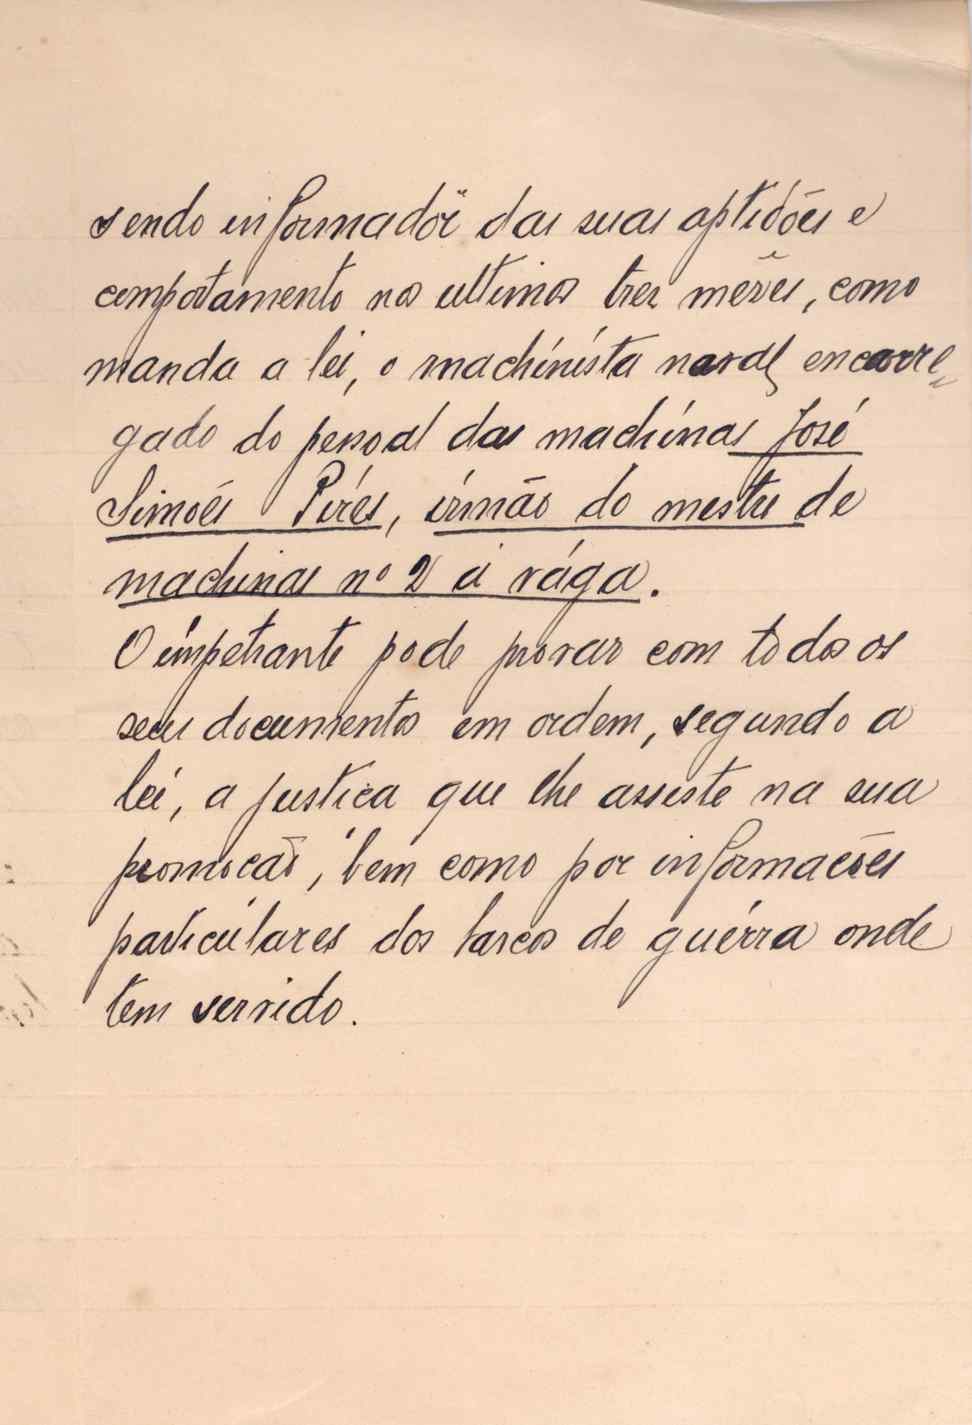 sendo informador das suas aptidões e
comportamento nos ultimos tres mêzes, como
manda a lei, o machinista naval encarre-
gado do pessoal das machinas José
Simoés Pirés, irmão do mestre de
machinas nº 2 á vága.
O impetrante pode provar com todos os
seus documentos em ordem, segundo a
lei, a justica que lhe assiste na sua
promocão, bem como por informacões
particúlares dos barcos de guérra onde
tem servido.